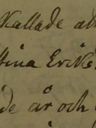 Kallade att
stina Erikss
de år och